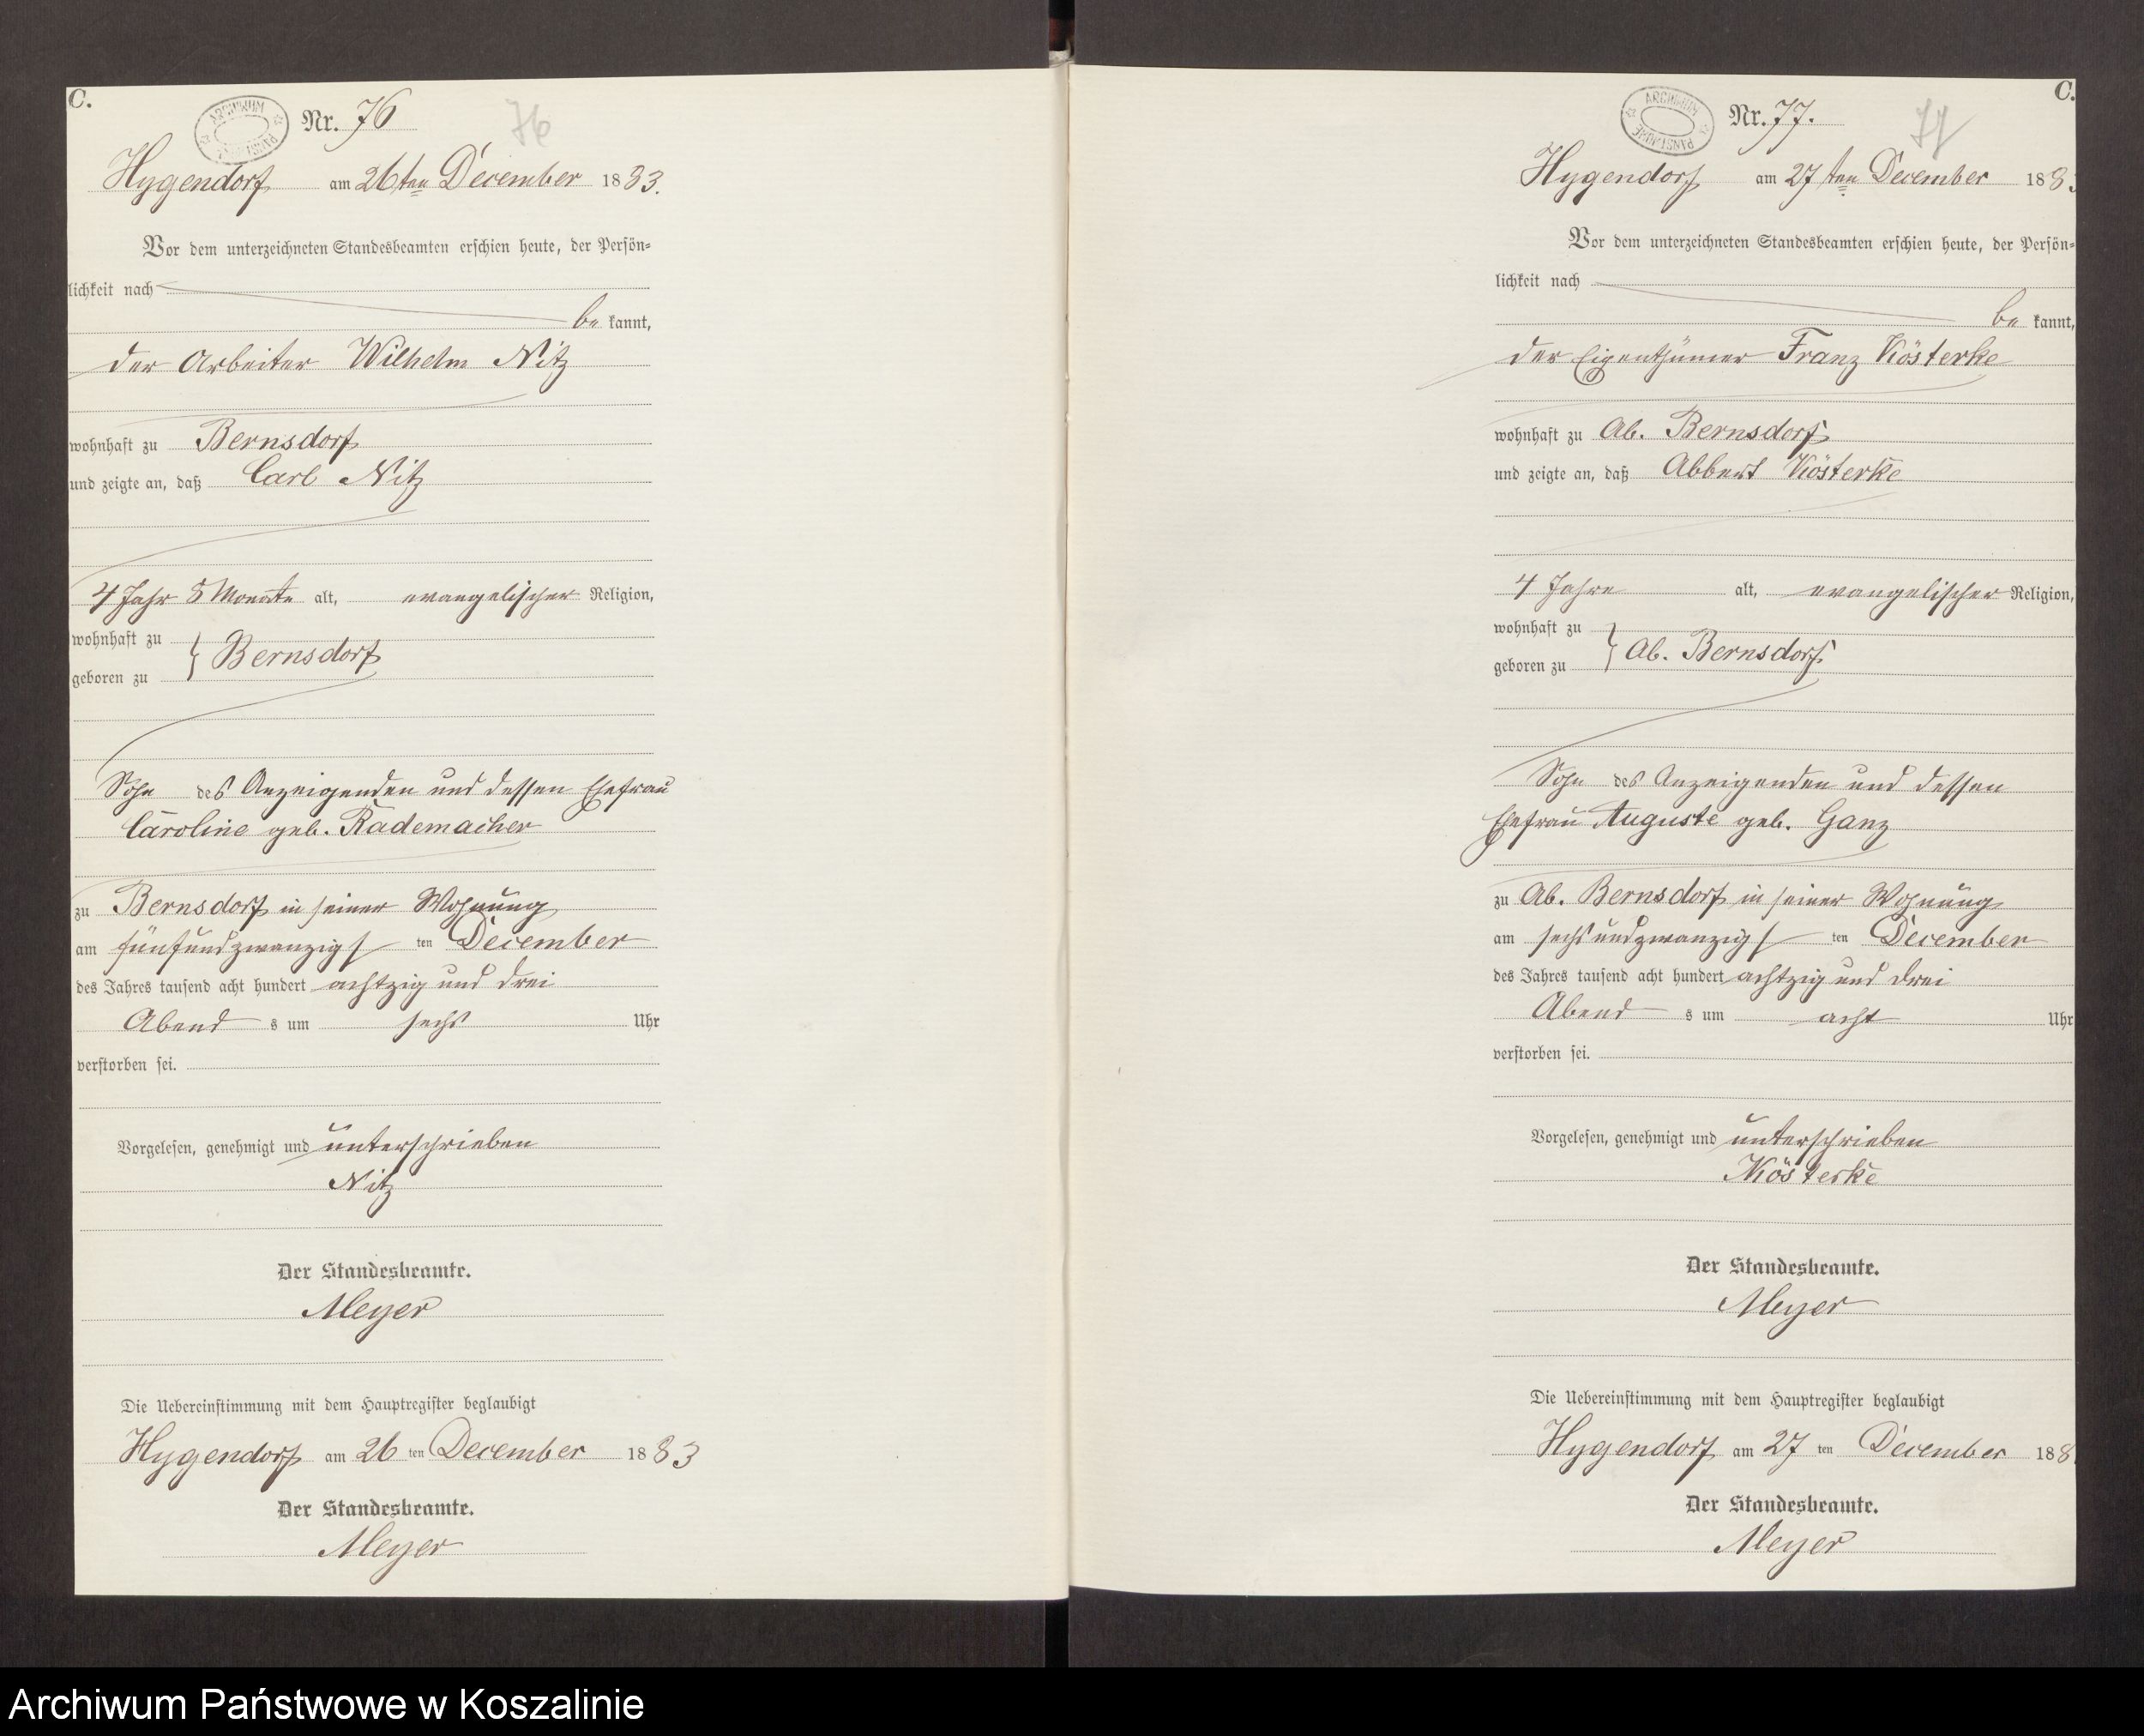 C.
ARCHIWUM PAŃSTWOWE
Nr. 76
76
Hygendorf am 26ten December 1883.
Vor dem unterzeichneten Standesbeamten erschien heute, der Persön-
lichkeit nach
be kannt,
der Arbeiter Wilhelm Nitz
wohnhaft zu Bernsdorf
und zeigte an, daß Carl Nitz
4 Jahr 5 Monate alt, evangelischer Religion,
wohnhaft zu
} Bernsdorf
geboren zu
Sohn des Anzeigenden und dessen Ehefrau
Caroline geb. Rademacher
zu Bernsdorf in seiner Wohnung
am fünfundzwanzigs ten December
des Jahres tausend acht hundert achtzig und drei
Abend s um sechs Uhr
verstorben sei.
Vorgelesen, genehmigt und unterschrieben
Nitz
Der Standesbeamte.
Meyer
Die Uebereinstimmung mit dem Hauptregister beglaubigt
Hygendorf am 26 ten December 1883
Der Standesbeamte.
Meyer
C.
ARCHIWUM PAŃSTWOWE
Nr. 77.
77
Hygendorf am 27ten December 188
Vor dem unterzeichneten Standesbeamten erschien heute, der Persön-
lichkeit nach
be kannt,
der Eigenthümer Franz Kösterke
wohnhaft zu Ab. Bernsdorf
und zeigte an, daß Albert Kösterke
4 Jahre alt, evangelischer Religion,
wohnhaft zu
} Ab. Bernsdorf.
geboren zu
Sohn des Anzeigenden und dessen
Ehefrau Auguste geb. Ganz
zu Ab. Bernsdorf in seiner Wohnung
am sechsundzwanzigs ten December
des Jahres tausend acht hundert achtzig und drei
Abend s um acht Uhr
verstorben sei.
Vorgelesen, genehmigt und unterschrieben
Kösterke
Der Standesbeamte.
Meyer
Die Uebereinstimmung mit dem Hauptregister beglaubigt
Hygendorf am 27 ten December 188
Der Standesbeamte.
Meyer
Archiwum Państwowe w Koszalinie